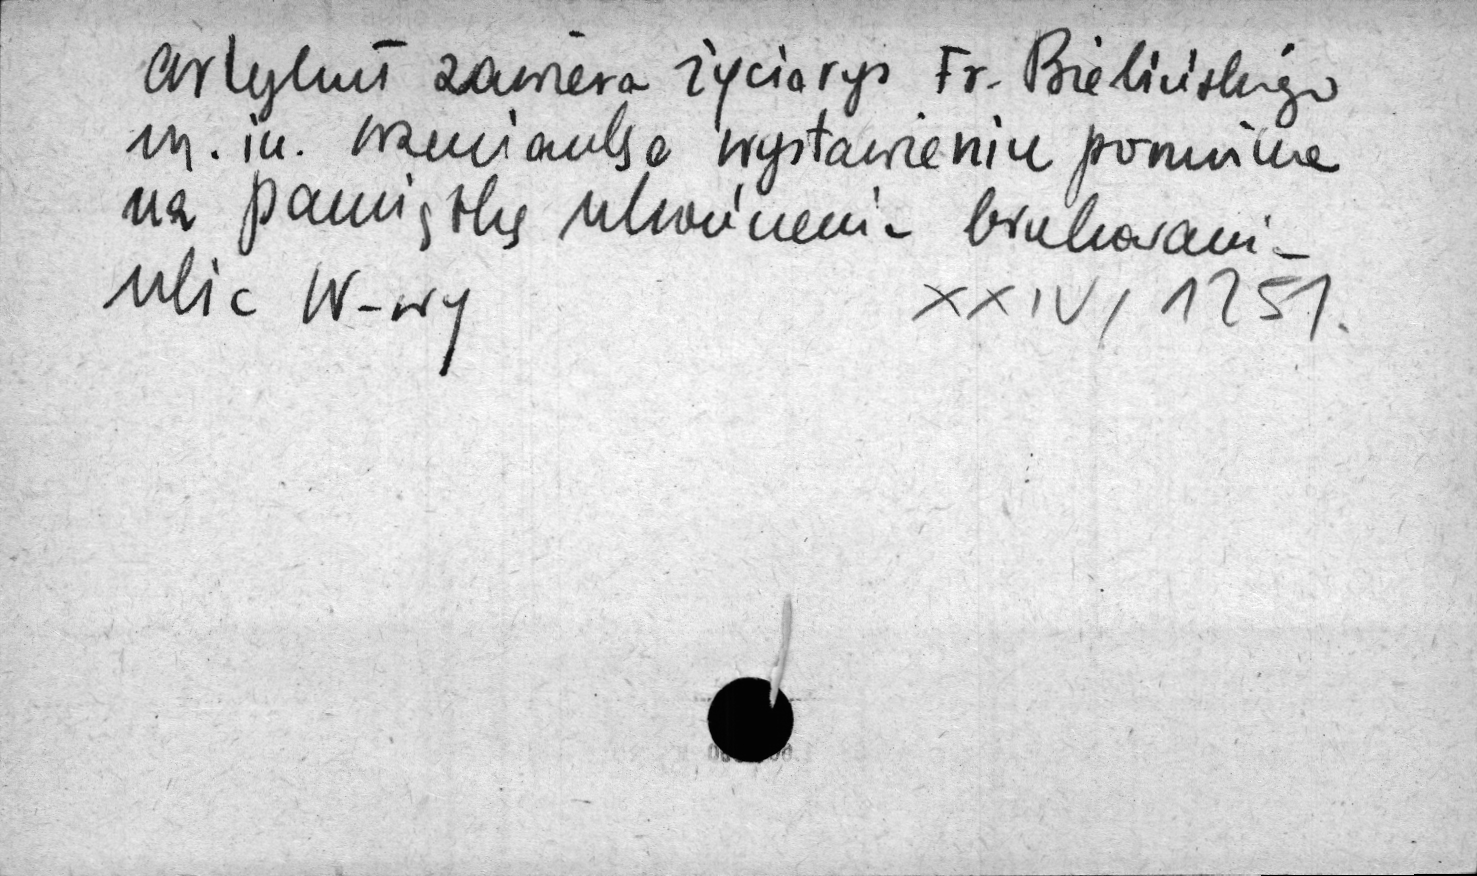 artykuł zawiera życiorys Fr. Bielińskiego
m. in. wzmianka o wystawieniu pomnika
na pamiątkę ukończenia brukowania
ulic W-wy XXIV, 1251.